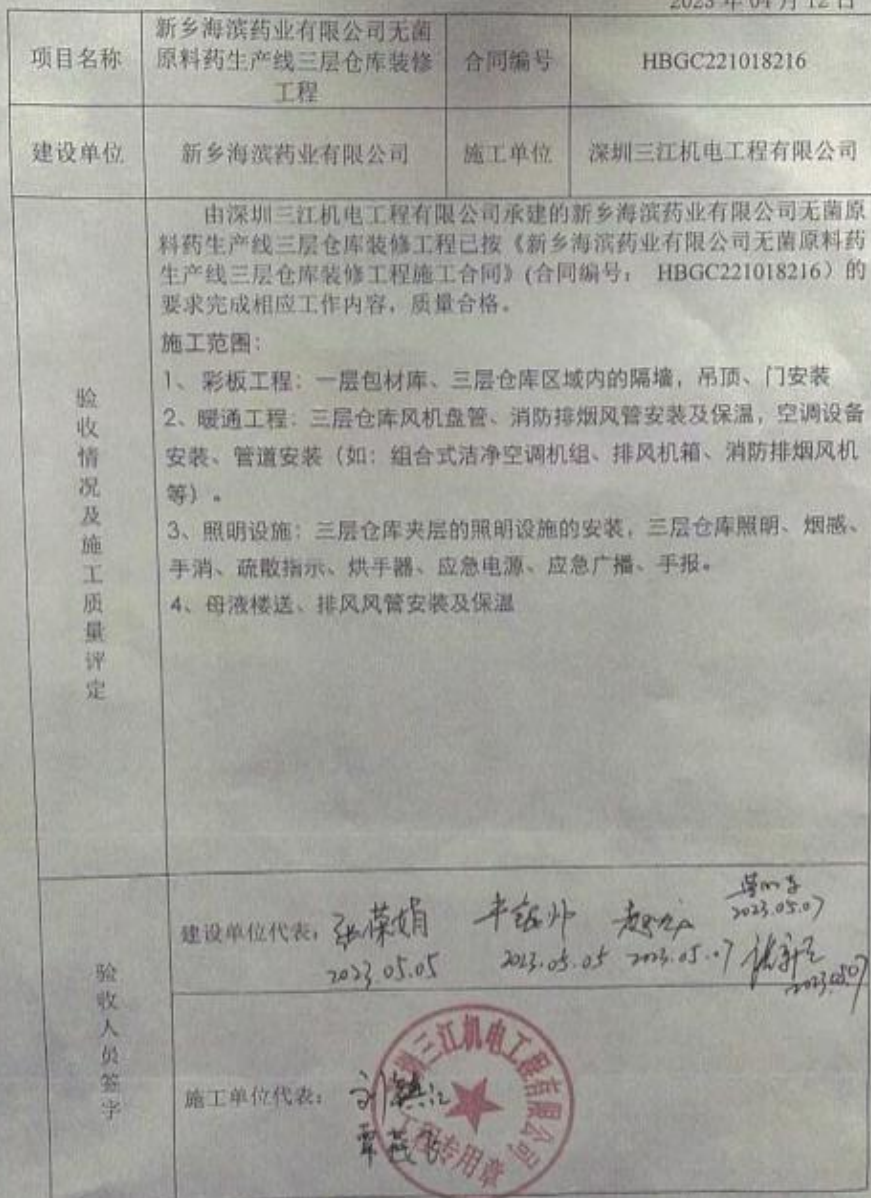 2023 年 04 月 12 日
项目名称
新乡海滨药业有限公司无菌
原料药生产线三层仓库装修
工程
合同编号
HBGC221018216
建设单位
新乡海滨药业有限公司
施工单位
深圳三江机电工程有限公司
验收情况及施工质量评定
由深圳三江机电工程有限公司承建的新乡海滨药业有限公司无菌原
料药生产线三层仓库装修工程已按《新乡海滨药业有限公司无菌原料药
生产线三层仓库装修工程施工合同》(合同编号： HBGC221018216）的
要求完成相应工作内容，质量合格。
施工范围：
1、 彩板工程：一层包材库、三层仓库区域内的隔墙，吊顶、门安装
2、暖通工程：三层仓库风机盘管、消防排烟风管安装及保温，空调设备
安装、管道安装（如：组合式洁净空调机组、排风机箱、消防排烟风机
等）。
3、照明设施：三层仓库夹层的照明设施的安装，三层仓库照明、烟感、
手消、疏散指示、烘手器、应急电源、应急广播、手报。
4、母液楼送、排风风管安装及保温
验收人员签字
建设单位代表：
2023.05.07
2023.05.05
2023.05.05
2023.05.07
2023.05.07
施工单位代表：
深圳三江机电工程有限公司
工程专用章